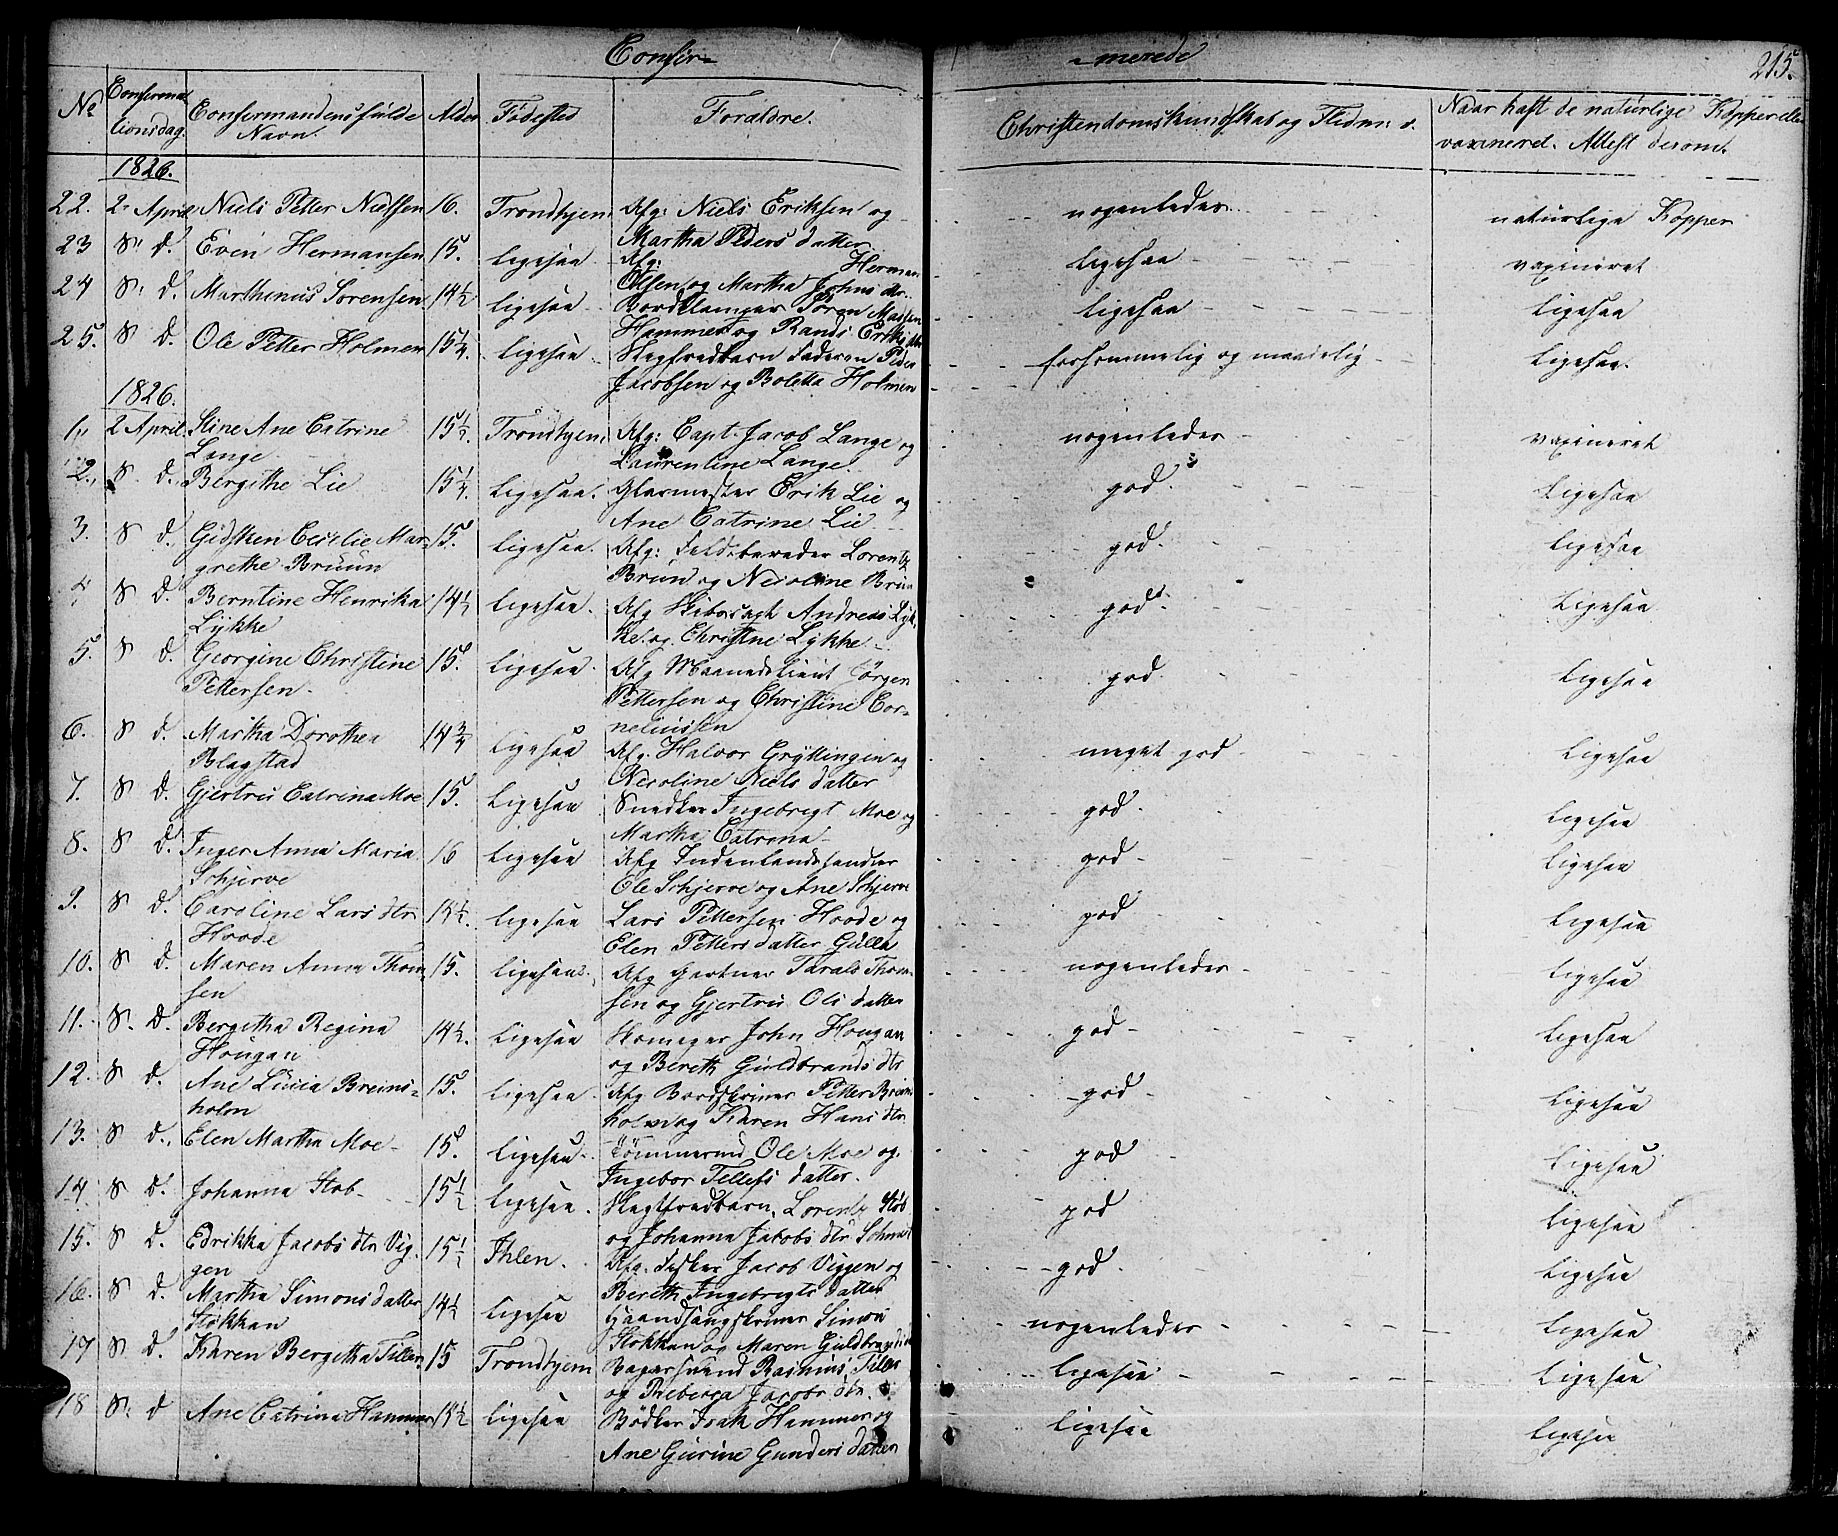 Confir=
=merede
215.
No
Confirma
tionsdag.
Confirmandens fulde
Navn.
Alder
Födested
Forældre.
Christendomskundskab og Flid m: v.
Naar haft de naturlige Kopper eller
vaxineret. Attest derom.
1826.
22. 2 April Niels Petter Nielsen 16. Trondhjem Afg: Niels Eriksen og nogenledes naturlige Kopper
Martha Peders datter
23 S. d. Even Hermansen 15. ligesaa Afg: Herman ligesaa vaxineret
Olsen og Martha Johns dtr.
24 S. d. Marthinus Sörensen 14½ ligesaa Sören Madsen ligesaa ligesaa
Hammer og Randi Eriks dtr
25. S d. Ole Petter Holmen 15¼. ligesaa Slegfredbarn Faderen Peder forsömmelig og maadelig ligesaa.
Jacobsen og Boletta Holmen
1826.
1. 2 April. Stine Ane Catrine 15½. Trondhjem Afg: Capt. Jacob Lange og nogenledes vaxineret
Lange Laurentine Lange
2. S. d. Bergithe Lie 15¼. ligesaa. Glarmester Erik Lie og god. ligesaa
Ane Catrine Lie
3. S d. Gidsken Cecilie Mar= 15. ligesaa. Afg: Lorentz god. ligesaa
grethe Bruun Brun og Nicoline Brun
4 S d. Berntine Henrika 14½ ligesaa. Afg Andreas Lyk god. ligesaa
Lykke ke og Christine Lykke
5. S d. Georgine Christine 15. ligesaa. Afg Jörgen god. ligesaa
Pettersen. Pettersen og Christine Cor=
neliussen
6. S d. Martha Dorothea 14¾ ligesaa Afg. Halvor Gryttingen og meget god ligesaa
Blagstad Nicoline Niels datter
7. S d. Gjertru Catrina Moe 15. ligesaa Snedker Ingebrigt Moe og god. ligesaa
Martha Catrina
8. S d. Inger Anna Maria 16 ligesaa Afg Indenlandshandler god ligesaa
Schjerve Ole Schjerve og Ane Schjerve
9. S d. Caroline Lars dtr ligesaa Lars Pettersen Hoode og god ligesaa
Hoode Elen Petters datter Gulla
10. S d. Maren Anna Thom 15. ligesaa Afg Gartner Thom nogenledes ligesaa
sen sen og Gjertru Ols datter
11. S. d. Bergitha Regina 14½. ligesaa John Hougan god ligesaa
Hougan og Bereth Guldbrands dtr
12. S d. Ane Lucia Breins= 15. ligesaa Afg Bordskriver Petter Breins god ligesaa
holm holm og Karen Hans dtr
13. S d. Elen Martha Moe 15. ligesaa Tömmermd Ole Moe og god ligesaa
Ingebor Tellefs datter.
14 S d. Johanna Stob 15½ ligesaa Slegtfredbarn, Lorentz Stob god ligesaa
og Johanna Jacobs dtr
15. S d. Edrikka Jacobs dtr Vig= 15½ Ihlen. Afg. Fisker Jacob Viggen og god ligesaa
gen Bereth Ingebrigts datter
16. S d. Martha Simons datter 14½ ligesaa Simon nogenledes ligesaa
Stokkan Stokkan og Maren Guldbrands dtr
17 S d. Karen Bergitha Tiller 15 Trondhjem Bagersvend Rasmus Tiller ligesaa ligesaa
og Rebecca Jacobs dtr.
18 S. d Ane Catrina Hammer ligesaa Bödker Isak Hammer og ligesaa ligesaa
Ane Gurine Gunders datter